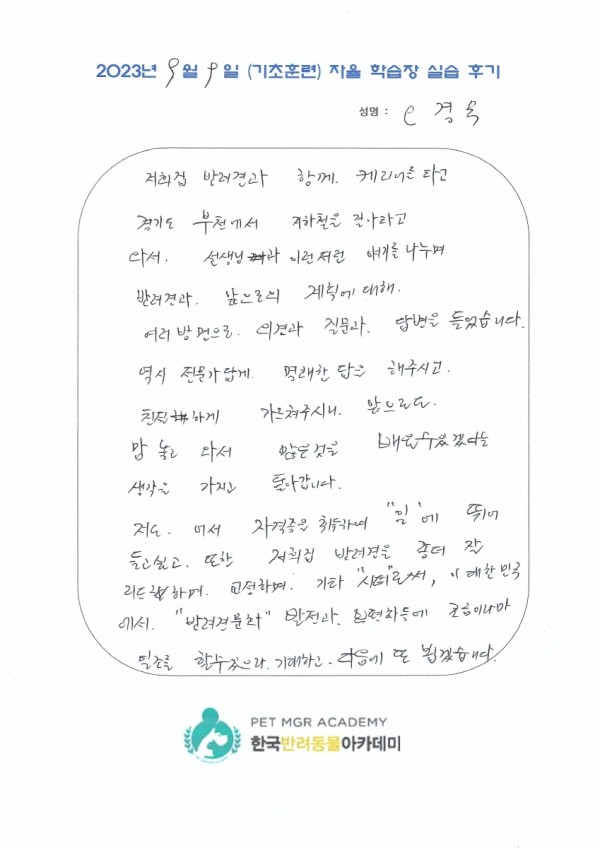 2023년 9월 9일 (기초훈련) 자율 학습장 실습 후기
성명 : 이경옥
저희집 반려견과 함께. 케리어를 타고
경기도 부천에서 지하철을 갈아타고
와서. 선생님과 이런저런 얘기를 나누며
반려견과. 앞으로의 계획에 대해.
여러 방면으로. 의견과 질문과. 답변을 들었습니다.
역시 전문가답게. 명쾌한 답을 해주시고.
친절하게 가르쳐주시니. 앞으로도.
맘 놓고 와서 많은것을 배울수있겠다는
생각을 가지고 돌아갑니다.
저도. 어서 자격증을 취득하여 "일"에 뛰어
들고싶고. 또한 저희집 반려견을 좀더 잘
리드하며. 교정하며. 기타 이 대한민국
에서. "반려견문화" 발전과. 조금이나마
일조를 할수있으라. 기대하고. 다음에 또 뵙겠습니다.
PET MGR ACADEMY
한국반려동물아카데미